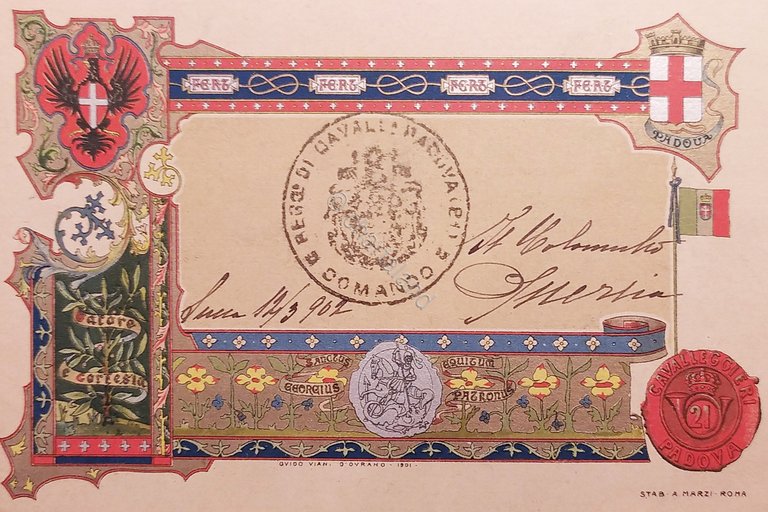 FERT FERT FERT FERT
PADOVA
REGG. DI CAVALL. PADOVA (21)
COMANDO
Il Colonnello
Lucca 12/3 902
Valore
e cortesia
SANCTUS EQUITUM
GEORGIUS PATRONUS
CAVALLEGGIERI
21
PADOVA
GUIDO VIANI D'OVRANO - 1901 -
STAB. A. MARZI - ROMA